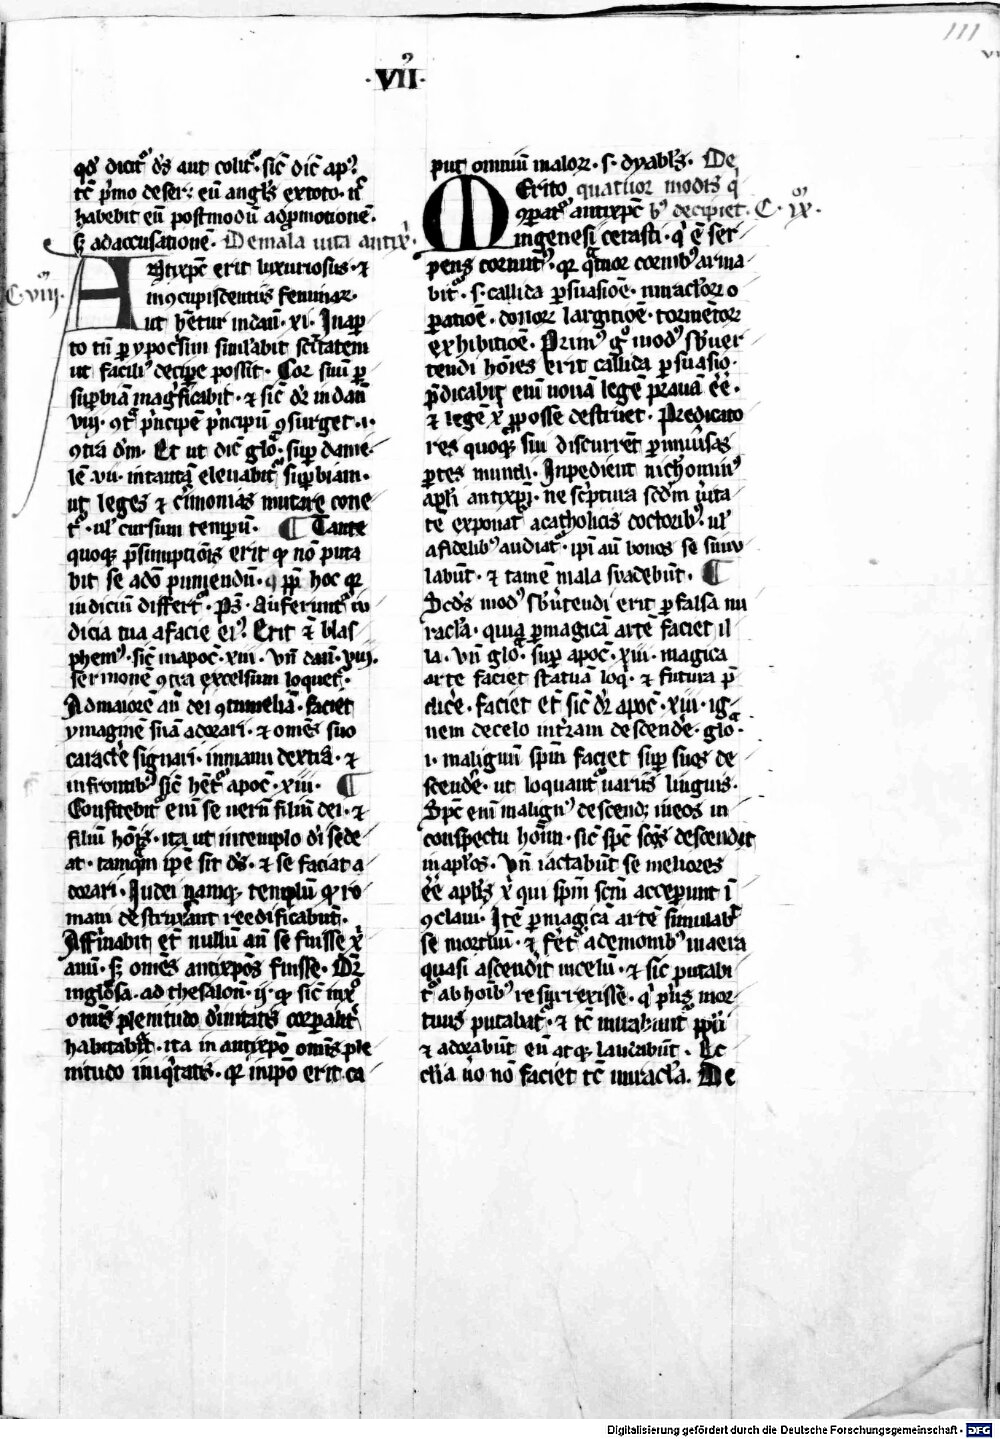 111
·VII·
qd' dicit᷑ d's aut colit᷑· sic̄ dic̄ ap'
tc̄ p̄mo deser: eū angl's ex toto· n̄
habebit eū postmodū ad p̄motionē·
s; ad accusationē· De mala uita antix̄·
C· viii·
Antixp̄c erit luxuriosus· ⁊
in ꝯcupiscentiis feminar·
ut hētur in dan̄· xi· In aꝑ
to tn̄ ꝑ ypoc̄sim simulabit sc̄tatem
ut facili' decipe possit· Cor suū ꝑ
suꝑbiā mag̓ficabit· ⁊ sic̄ dr̄ in dan̄
viii· ꝯt᷑ p̓ncipē p̓ncipū ꝯsurget· i·
ꝯtra dm̄· Et ut dic̄ glo᷑· suꝑ danie
lē· vii· in tantū eleuabit᷑ suꝑbiam·
ut leges ⁊ cīmonias mutare cone
t᷑· ul' cursum tempū· ¶ Tante
quoq; p̄sumptiōis erit qꝫ nō puta
bit se a dō puniendū· ꝓp̄ hoc qr
iudiciū differt᷑· ps̄· Auferunt᷑ iu
dicia tua a facie ei'· Erit ⁊̄ blas
phem'· sic̄ in apoc̄· xiii· Vn̄ dan̄· vii·
sermonē ꝯtra excelsum loquet᷑·
Ad maiorē an̄ dei ꝯtumeliā· faciet
ymaginē suā adorari· ⁊ omēs suo
caractē signari· in manu dextra· ⁊
in frontib' sic̄ hēt᷑ apoc̄· xiii· ¶
Confitebit᷑ eni se uerū filiū dei· ⁊
filiū hōis· ita ut in templo dī sede
at· tamqm̄ ipē sit ds̄· ⁊ se faciat a
dorari· Iudei namq; templū qꝫ ro
mani destruxānt reedificabunt·
Affirmabit et nullū an̄ se fuisse x̄
anū· s; omēs antixpōs fuisse· Dr̄
in glosa· ad thesalon̄· ii· qꝫ sic̄ in x̄
omīs plenitudo diuinitatis corpalit᷑
habitabit· ita in antixpō omīs ple
nitudo iniq̓tatis· qr in ipō erit ca
put omniū malor· s· dyabl's· De
Merito quatuor modis q̓
ꝯparat᷑ antixpc̄ b' decipiet· C· ix·
in genesi cerasti· q̓ ē ser
pens cornut'· qr quatuor cornib' arma
bit᷑· s· callida ꝑsuasiōe· miraclor o
ꝑatiōe· donor largitiōe· tormētor
exhibitiōe· Prim' g° mod' sbuer
tendi hōies erit callida ꝑsuasio·
p̄dicabit eni nouā legē prauā ēē·
⁊ legē x̄ ꝓ posse destruet· Predicato
res quoq; sui discurrēt ꝑ uniūsas
ꝑtes mundi· Inpedient nichomin'
apl'i antixp̄i· ne sc̄ptura scdm̄ ūita
te exponat᷑ a catholicis doctorib'· ul'
a fidelib' audiat᷑· ipi au bonos se simu
labūt· ⁊ tamē mala suadebūt· ¶
Scd's mod' sbūtendi erit ꝑ falsa mi
racl'a· quia ꝑ magicā artē faciet il
la· Vn̄ glo᷑· suꝑ apoc̄· xiii· magica
arte faciet statuā loq̓· ⁊ futura p̄
dicē· faciet et sic̄ dr̄ apoc̄· xiii· ig
nem de celo in terram descendē· glo᷑·
i· malignū spm̄ faciet suꝑ suos de
scendē· ut loquant᷑ uariis linguis·
Spc̄ eni malign' descend; in eos in
conspectu hoīm· sic̄ spc̄ scs̄ descendit
in apl'os· Vn̄ iactabūt se meliores
ēē apl'is x̄ qui spm̄ scm̄ acceperunt ī
ꝯclaui· Itē ꝑ magicā artē simulab
se mortuū· ⁊ fēt᷑ a demonib' in aera
quasi ascendit in celū· ⁊ sic putabi
t᷑ ab hoīb' resurrexisse· q̓ p̓us mor
tuus putabat᷑· ⁊ tc̄ mirabunt᷑ ppl'i
⁊ adorabūt eū atq; laudabūt· Ec
cl'ia ūo nō faciet tc̄ miracl'a· De
Digitalisierung gefördert durch die Deutsche Forschungsgemeinschaft - DFG